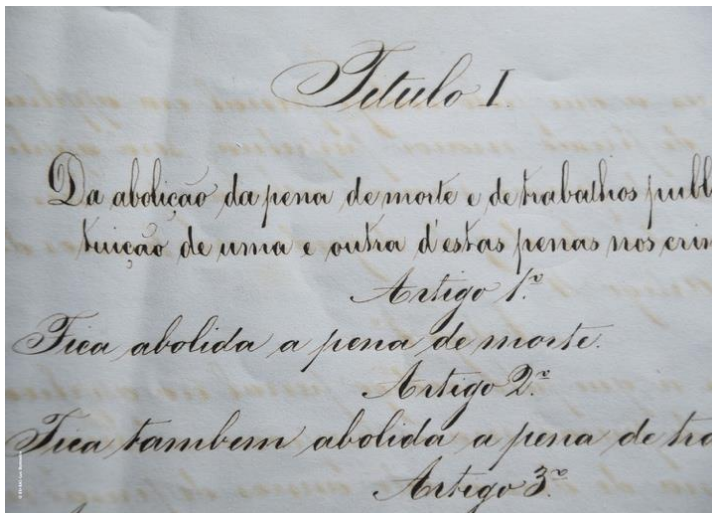 Titulo I.
Da abolição da pena de morte e de trabalhos publ
tuição de uma e outra d'estas penas nos crim
Artigo 1.º
Fica abolida a pena de morte.
Artigo 2.º
Fica tambem abolida a pena de tra
Artigo 3.º